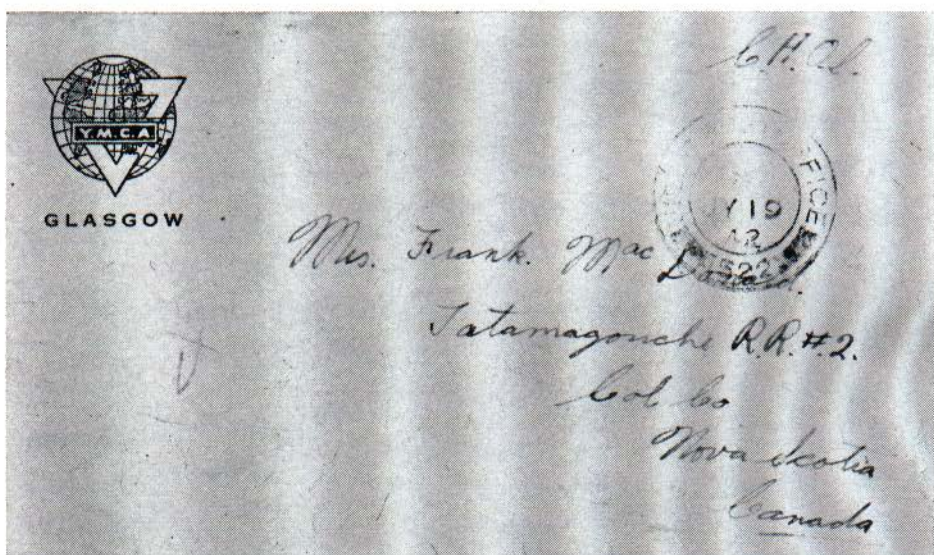 Y.M.C.A
GLASGOW
JY 19
42
Mrs. Frank. MacDonald.
Tatamagouche R.R.#.2.
Col Co
Nova Scotia
Canada